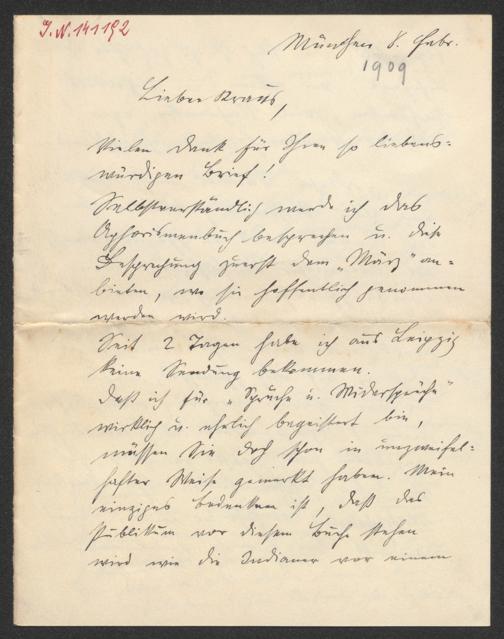 J.N. 141192
München 8. Febr.
1909
Lieber Kraus,
Vielen Dank für Ihren so liebens-
würdigen Brief!
Selbstverständlich werde ich das
Aphorismenbuch besprechen u. diese
Besprechung zuerst dem „März" an-
bieten, wo sie hoffentlich genommen
werden wird.
Seit 2 Tagen habe ich aus Leipzig
keine Sendung bekommen.
Daß ich für „Sprüche u. Widersprüche"
wirklich u. ehrlich begeistert bin,
müssen Sie doch schon in unzweifel-
hafter Weise gemerkt haben. Mein
einziges Bedenken ist, daß das
Publikum vor diesem Buche stehen
wird wie die Indianer vor einem